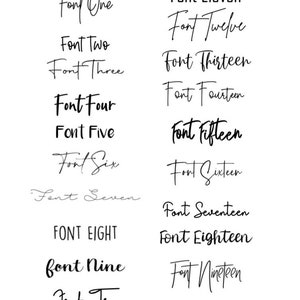 Font One
Font Two
Font Three
Font Four
Font Five
Font Six
Font Seven
FONT EIGHT
Font Nine
Font Ten
Font Eleven
Font Twelve
Font Thirteen
Font Fourteen
Font Fifteen
Font Sixteen
Font Seventeen
Font Eighteen
Font Nineteen